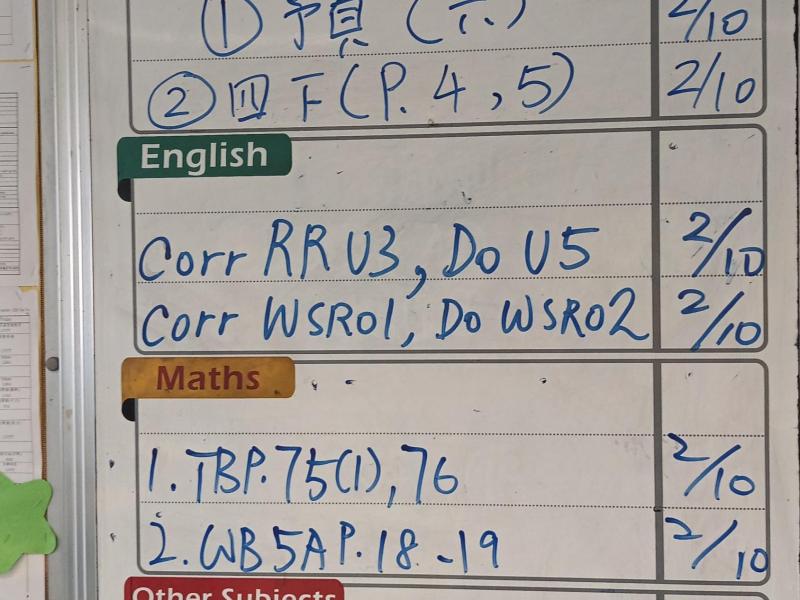 ① 予頁 (六) 2/10
② 四下 (P. 4, 5) 2/10
English
Corr RR U3, Do U5 2/10
Corr WSR01, Do WSR02 2/10
Maths
1. TBP. 75(1), 76 2/10
2. WB 5A P. 18 - 19 2/10
Other Subjects